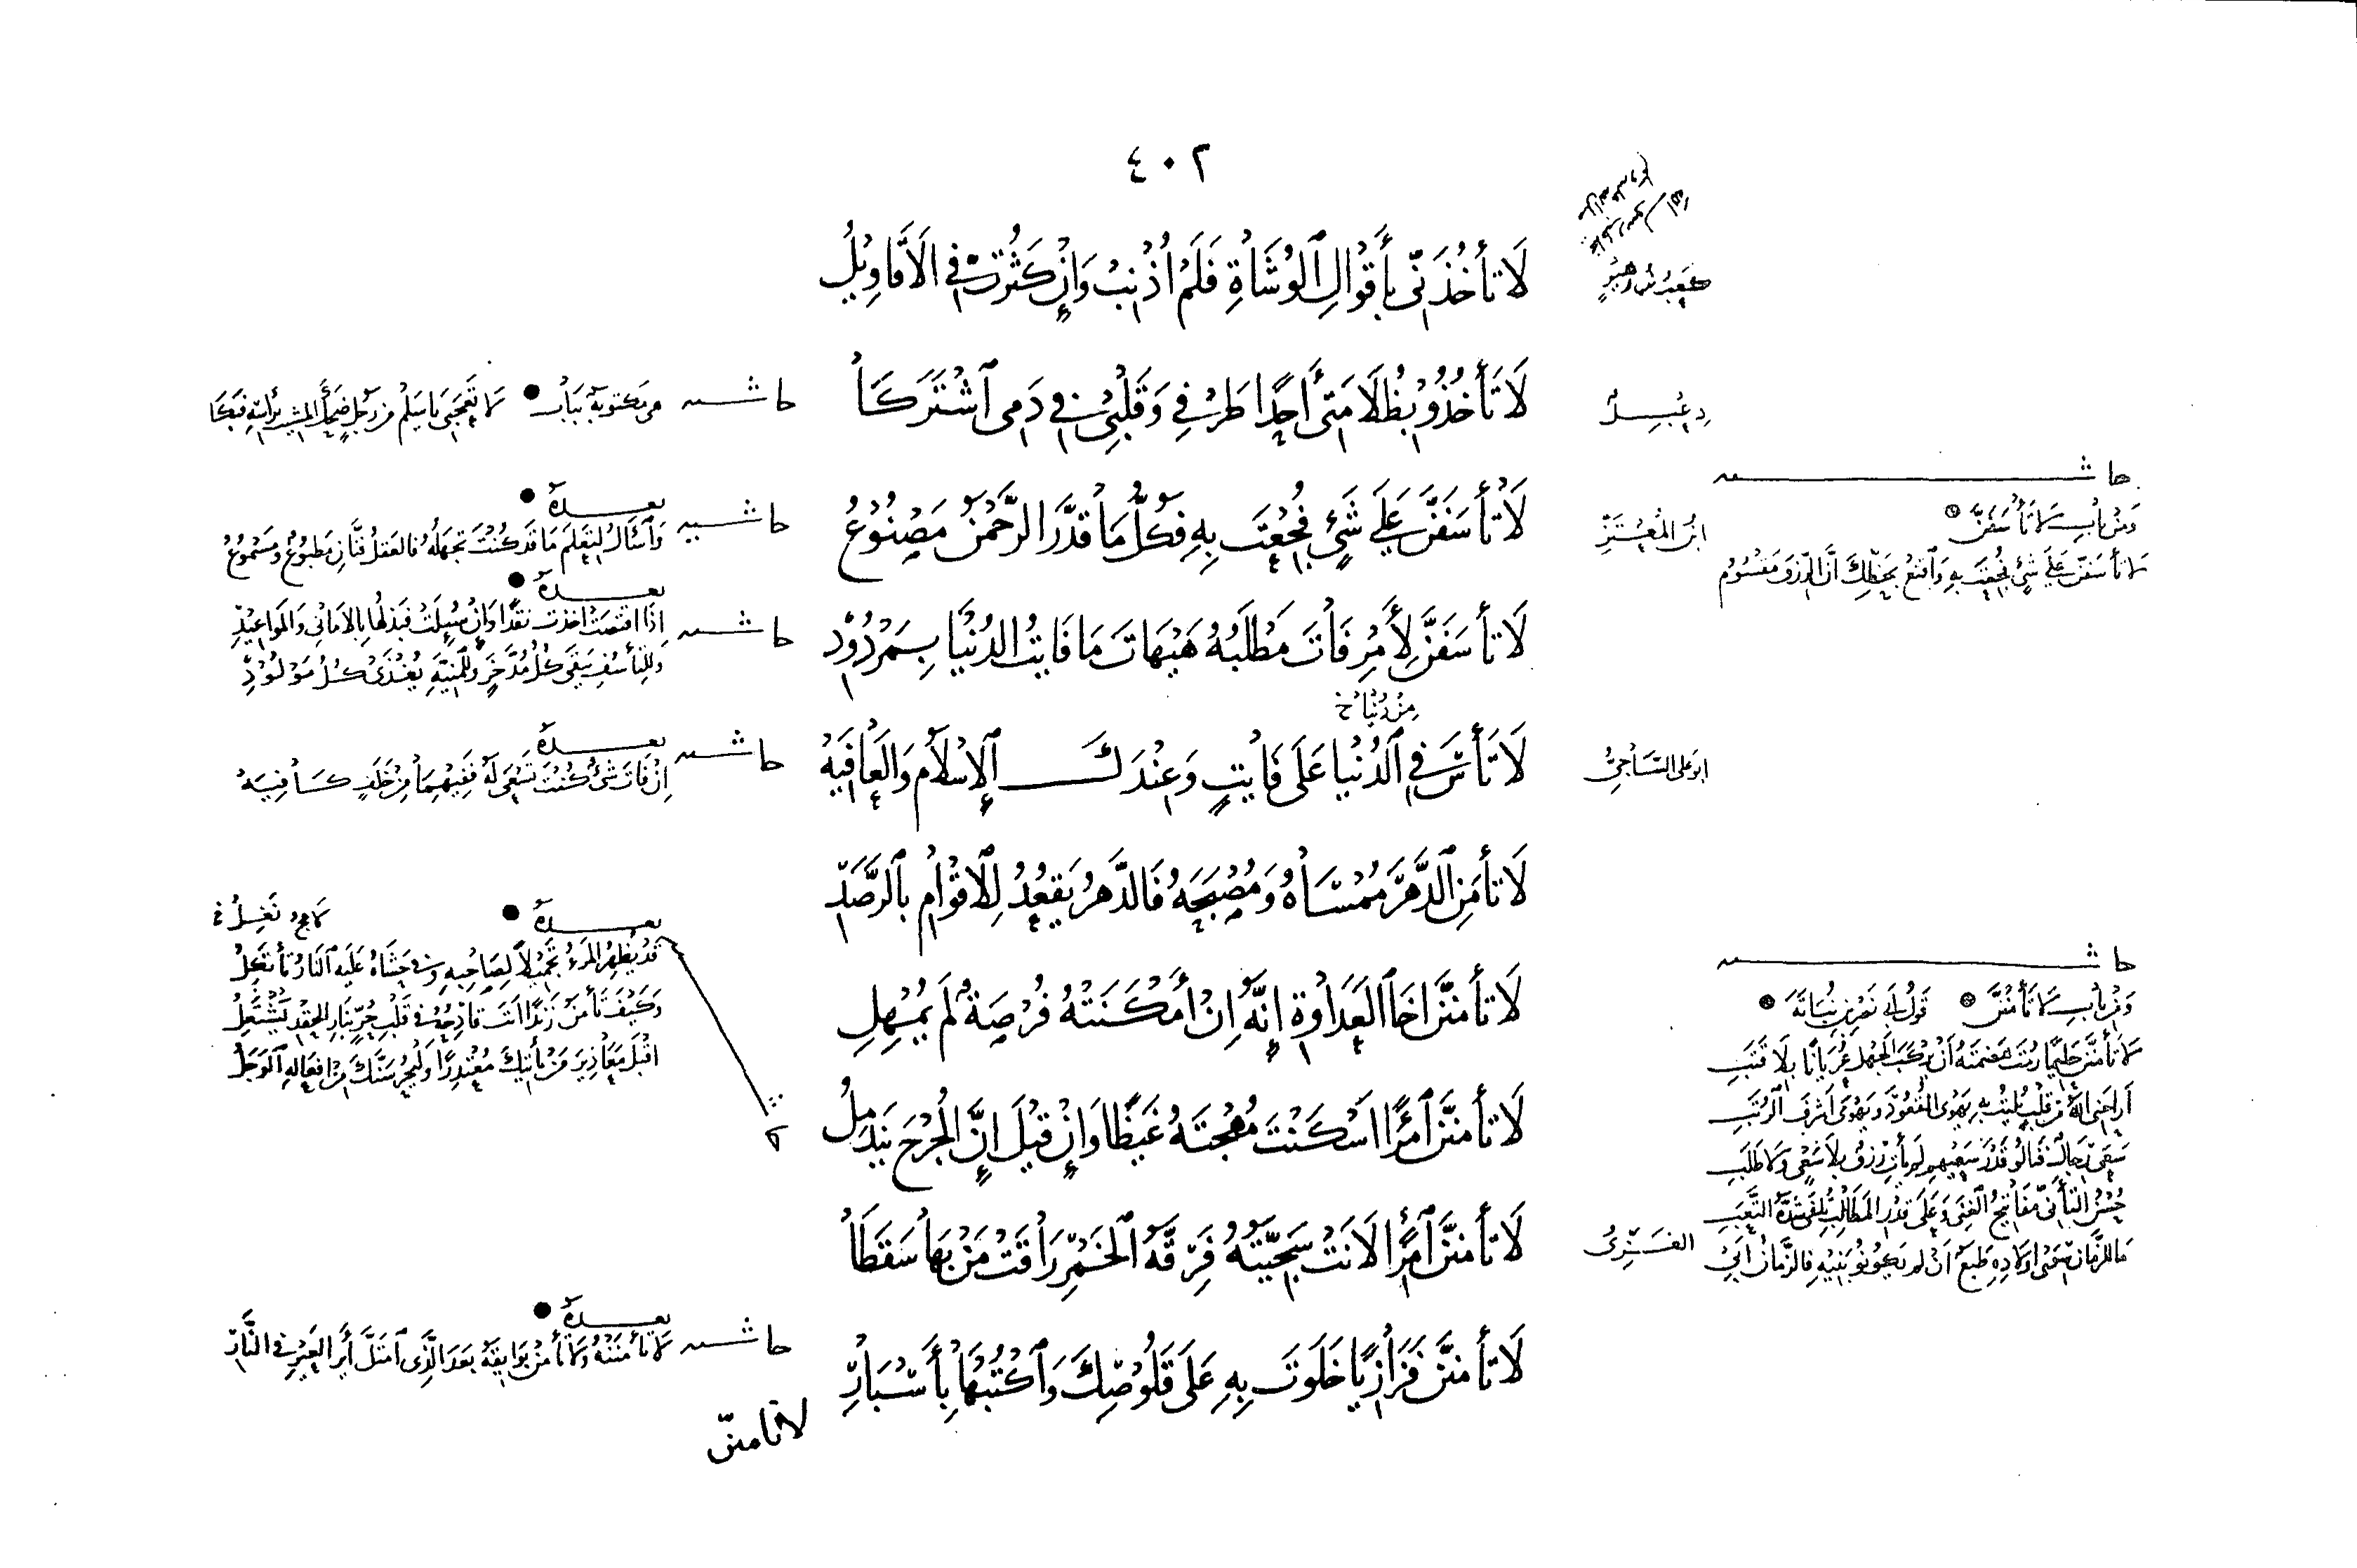 ٤٠٢
كَعبُ بن زُهَيرٍ
لَا تَأخُذَنّى بأَقْوَالِ ٱلوُشَاةِ فَلَمْ أُذْنِبْ وَإِنْ كَثُرَتْ فِىَّ الأَقَاوِيلُ
دِعْبِلٌ
لَا تَأخُذُوا بِظُلَامَتِى أَحَدًا طَرْفِى وَقَلْبِى فِى دَمِى ٱشْتَرَكَا
حاشيه
هى مَكتوبة ببَاب لا تَعجَبى يا سَلمُ من رَجُلٍ ضَحِكَ المشيب برأسه فبَكَا
ابنُ المُعتَزِّ
لَا تَأسَفَنَّ عَلَى شَىْءٍ فُجِعْتَ بِهِ فَكُلُّ مَا قَدَّرَ الرَّحْمٰنُ مَصْنُوعُ
حاشيه
بعده
وَٱسأل لتعلَمَ مَا قَد كُنتَ تجهَلُهُ فالعَقلُ فنَّانِ مَطبُوعٌ ومَسْمُوعُ
حاشيه
وَمن باب لا تَأسَفَنَّ
لا تأسَفَنّ عَلَى شَىْءٍ فُجعتَ بهِ وَٱقنَعْ بحَظِّكَ انَّ الرّزقَ مَقسُومُ
لَا تَأسَفَنَّ لِأَمْرٍ فَاتَ مَطْلَبُهُ هَيْهَاتَ مَا فَايتُ الدُنْيَا بِمَرْدُوْدِ
حاشيه
بعده
إذَا اقتَضَتْ اخذت نقدًا وَإن سُيِلَتْ فبَذلُهَا بالامَانِى وَالموَاعيْدِ
وَللتأسُفِ يَبقَى كُلُّ مُدَّخَرٍ وَللمَنِيَّةِ يُغْذَى كُلُّ مَوْلُوْدِ
من دُنْيَا خ
ابو على السَّاجِىُّ
لَا تَأسَ فِى ٱلدُنْيَا عَلَى فَايتٍ وَعِنْدَكَ ٱلإِسْلَامُ وَالعَافِيَهْ
حاشيه
بعده
إنْ فَاتَ شَىْءٌ كُنْتَ تَسْعَى لَهُ فَفِيْهِمَا مِنْ خَلَفٍ كَافِيَهْ
لَا تَأمَنِ ٱلدَّهْرَ مُمْسَاهُ وَمُصْبَحَهُ فَالدَّهرُ يَقعُدُ لِلأَقْوَامِ بالرَّصَدِ
لَا تَأمَنَنَّ اخَا ٱلعَدَاوةِ إنَّه إنْ أَمْكَنَتْهُ فُرْصَةٌ لَم يُمْهِلِ
لَا تَأمَنَنَّ ٱمْرًا اسْكَنْتَ مُهجَتَهُ غَيظًا وَإنْ قيْلَ إنَّ الجُرْحَ يَندَمِلُ
بعده
قَد يُظهِرُ المَرءُ تجميلًا لِصَاحِبِهِ وفى حَشَاهُ عَلَيهِ النَارُ تَأتَكِلُ
وَكَيْفَ تَأمَنُ زَندًا انتَ قادِحُهُ فى قَلبِ حُرٍّ بنَارِ الحِقدِ يَشْتَعِلُ
اقبَلْ مَعَاذِيرَ مَن يَأتيكَ مُعْتَذِرًا وَليَحْرُسَنَّكَ من افعَالِهِ ٱلوَجَلُ
حاشيه
وَمن باب لَا تَأمَنَنَّ قَولُ ابى نَصْر بن نُبَاتَةَ
لا تَأمَنَنّ حَليمًا رُبتَ هَضمَتَهُ أنْ يركَبَ الجَهلَ عُريَانًا بلَا قَتَبِ
اراحَنى اللهُ من قلبٍ بُليْتُ بهِ يَهوَى القُعُودَ ويَهوَى اشرفَ الرُّتَبِ
سَعَى رِجَالٌ فنَالُوا قَدْرَ سَعيهِمِ لم يأتِ رزقٌ بلَا سَعْىٍ وَلا طَلَبِ
حُسْنُ التأنّى مفَاتيحُ الغِنَى وَعَلَى قدرِ المَطَالِبِ تلقى شدَّةَ التَّعَبِ
الغَزِّىُّ
لَا تَأمَنَنَّ ٱمرًا لَانَتْ سَجِيّتُهُ فَرِقّةُ ٱلخَمْرِ رَاقَتْ مَنْ بهَا سَقَطَا
لَا تَأمَنَنَّ فَزَارِيًّا خَلَوتَ بِهِ عَلَى قَلُوصِكَ وَٱكْتُبْهَا بِأَسْيَارِ
حاشيه
بعده
لا تَأمَنَنْهُ وَلا تأمَنْ بَوَايقَهُ بَعدَ الَّذِى ٱمتَلَّ أيرَ العَيْرِ فى النَّارِ
لا تأمننّ